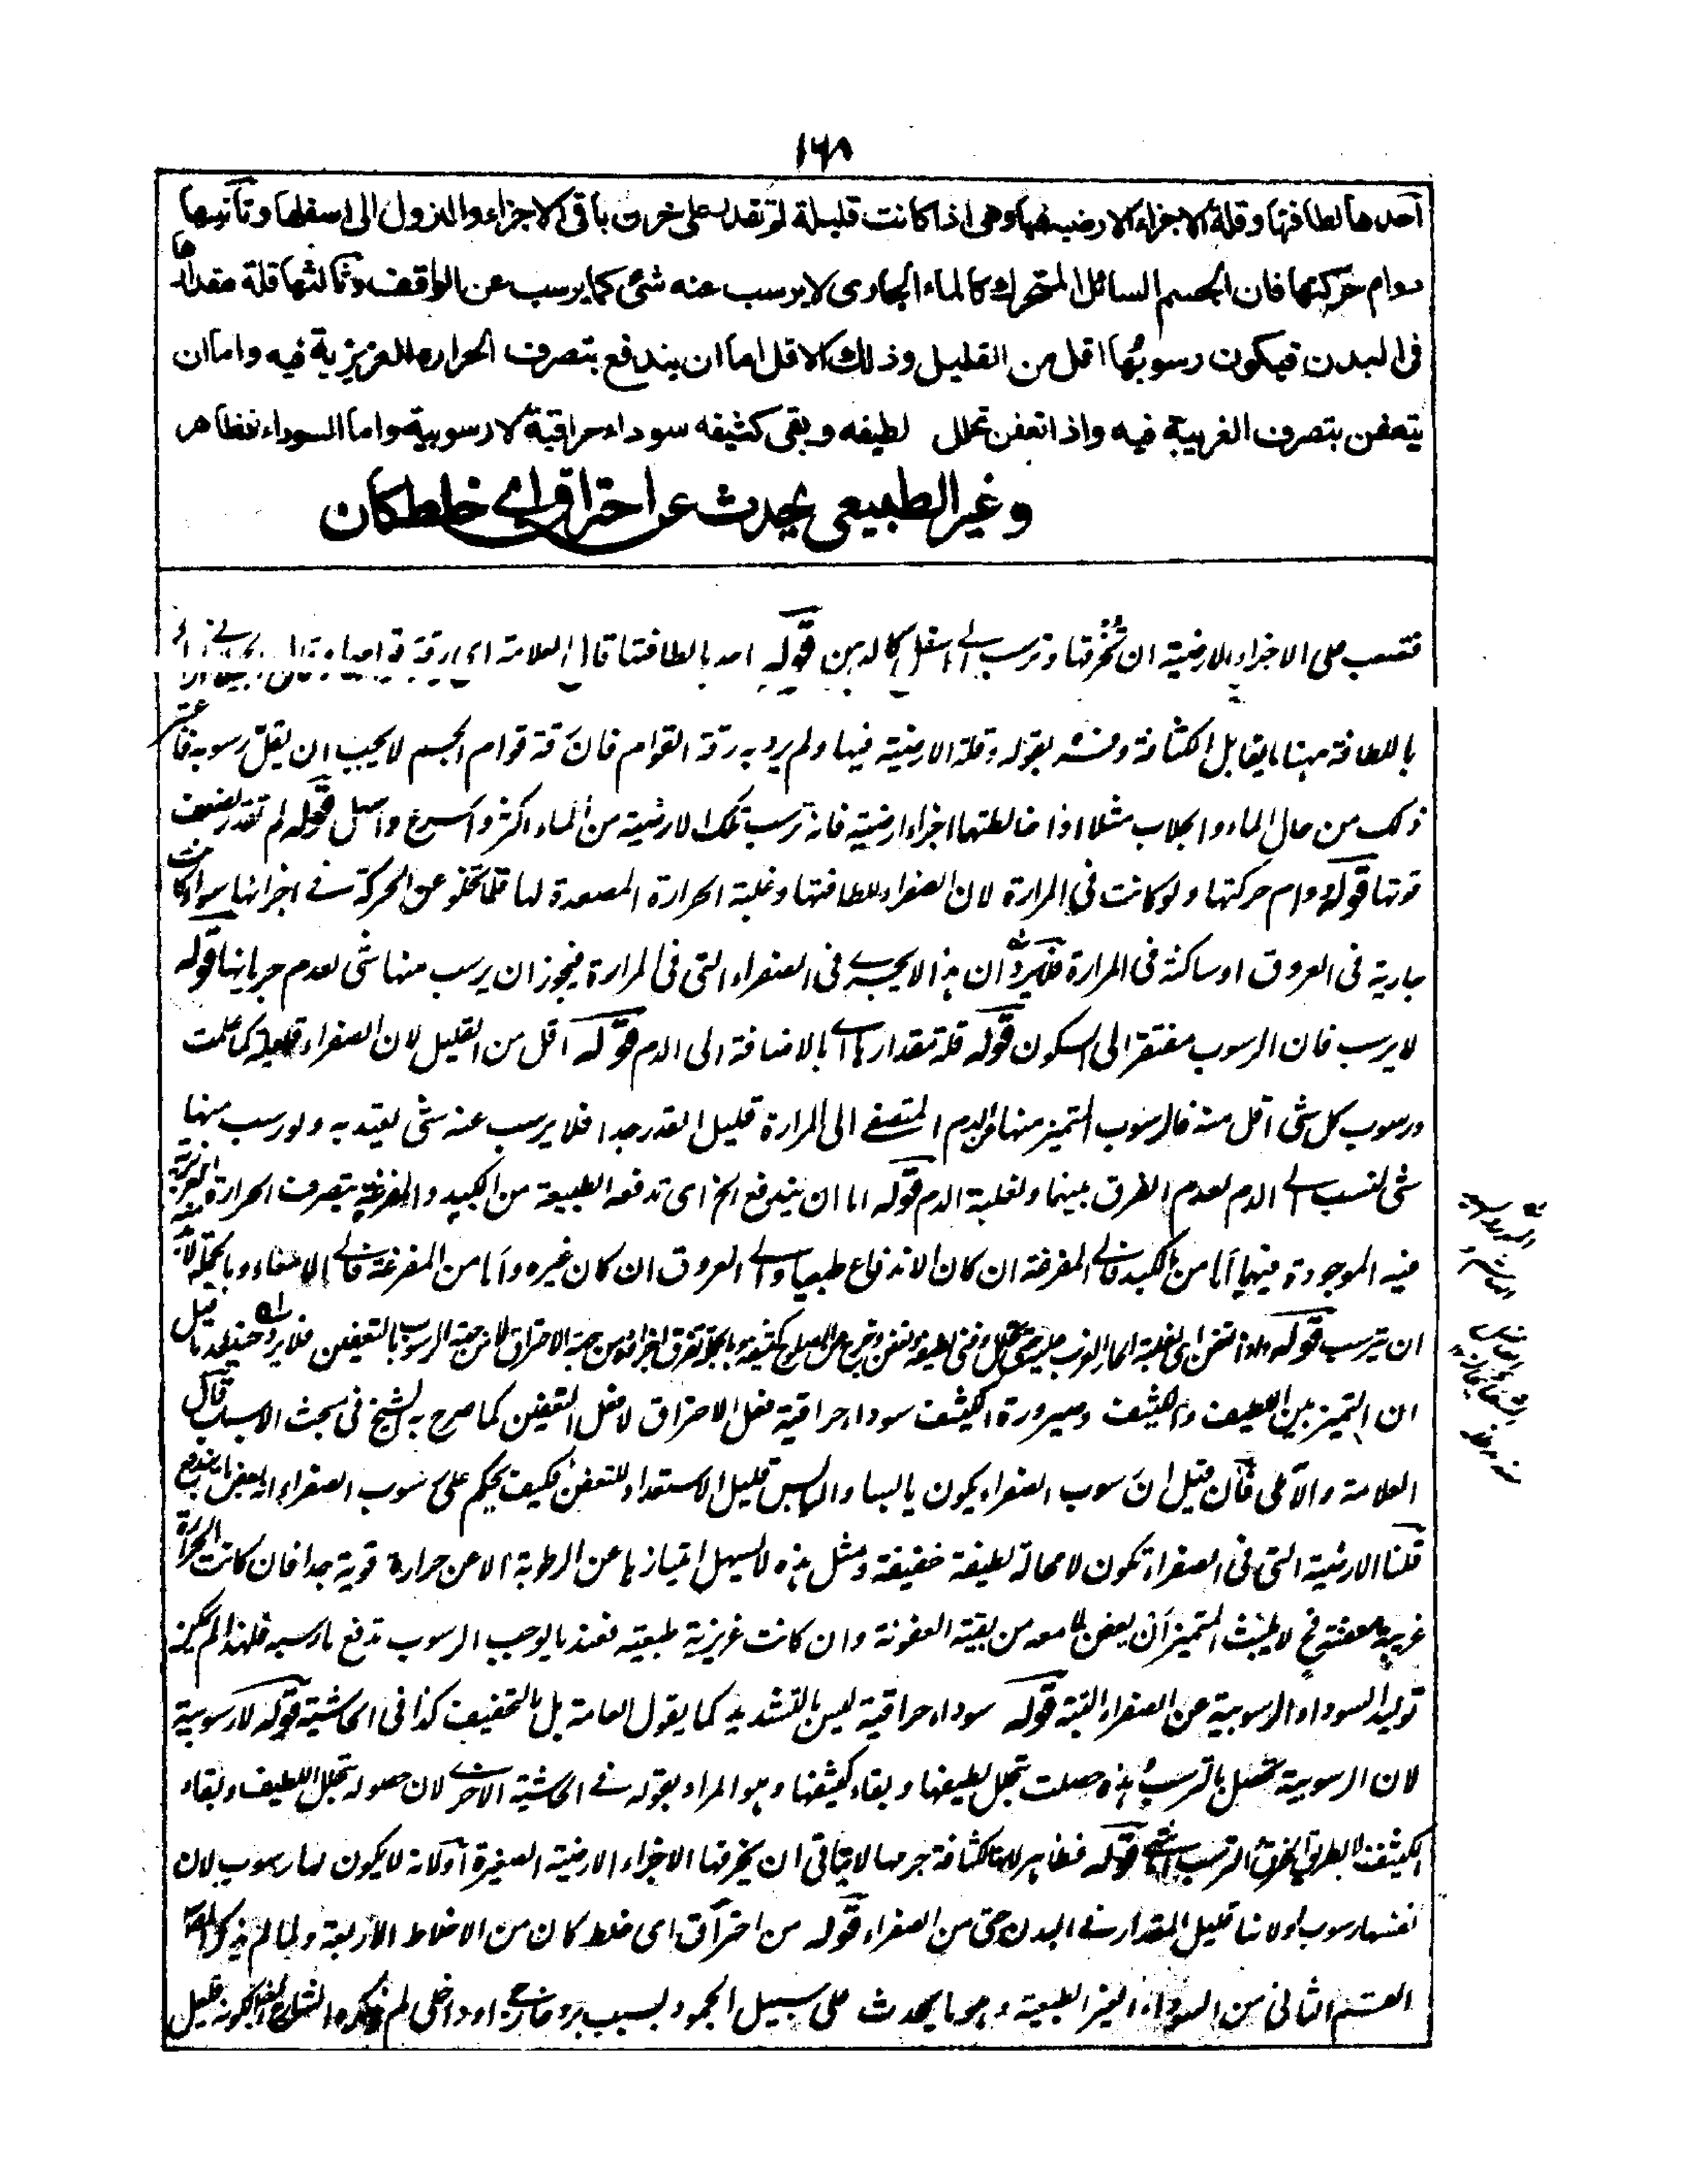 ١٦٨
احدها لطافتها وقلة الاجزاء الارضية فيها وهى اذا كانت قليلة لم تقدر على خرق باقى الاجزاء والنزول الى اسفلها وثانيها
دوام حركتها فان الجسم السائل المتحرك كالماء الجارى لا يرسب عنه شئ كما يرسب عن الواقف وثالثها قلة مقدارها
فى البدن فيكون رسوبها اقل من القليل وذلك الاقل اما ان يندفع بتصرف الحرارة الغريزية فيه واما ان
يتعفن بتصرف الغريبة فيه واذا تعفن تحلل لطيفه وبقى كثيفه سوداء حراقية لا رسوبية واما السوداء فظاهر
وغير الطبيعى يحدث عن احتراق اى خلط كان
فتصعب على الاجزاء الارضية ان تخرقها وترسب الى اسفل كالدهن قوله احدها لطافتها قال العلامة اى رقة قوامها
باللطافة ههنا ما يقابل الكثافة وفسره بقوله وقلة الارضية فيها ولم يرد به رقة القوام فان رقة قوام الجسم لا يجب ان يقل رسوبه فاعتبر
ذلك من حال الماء والجلاب مثلا اذا خالطتهما اجزاء ارضية فانه ترسب تلك الارضية من الماء اكثر واسرع واسهل قوله لم تقدر لضعف
قوتها قوله دوام حركتها ولو كانت فى المرارة لان الصفراء للطافتها وغلبة الحرارة المصعدة لها قلما تخلو عن الحركة فى اجزائها سواء كانت
جارية فى العروق او ساكنة فى المرارة فلا يرد ان هذا لا يجرى فى الصفراء التى فى المرارة فيجوز ان يرسب منها شئ لعدم جريانها قوله
لا يرسب فان الرسوب مفتقر الى السكون قوله قلة مقدارها اى بالاضافة الى الدم قوله اقل من القليل لان الصفراء قليلة كما علمت
ورسوب كل شئ اقل منه فالرسوب المتميز منها من الدم المتصفى الى المرارة قليل القدر جدا فلا يرسب عنه شئ يعتد به ولو رسب منها
شئ لنسب الى الدم لعدم الفرق بينهما ولغلبة الدم قوله اما ان يندفع الخ اى تدفعه الطبيعة من الكبد والمفرغة بتصرف الحرارة الغريزية
فيه الموجودة فيهما اما من الكبد فالى المفرغة ان كان الاندفاع طبيعيا والى العروق ان كان غيره واما من المفرغة فالى الامعاء وبالجملة
ان يترسب قوله واذا تعفن اى لغلبة الحار الغريب
ان التميز بين اللطيف والكثيف وصيرورة الكثيف سوداء حراقية فعل الاحتراق لا فعل التعفن كما صرح به الشيخ فى بحث الاسباب قال
العلامة والآملى فان قيل ان رسوب الصفراء يكون يابسا واليابس قليل الاستعداد للتعفن فكيف يحكم على رسوب الصفراء
قلنا الارضية التى فى الصفراء تكون لا محالة لطيفة خفيفة ومثل هذه لا يسهل امتيازها عن الرطوبة الا عن حرارة قوية جدا فان كانت الحرارة
غريبة معفنة لا يلبث المتميز ان يعفن لما معه من بقية العفونة وان كانت غريزية طبيعية فعند ما يوجب الرسوب تدفع ما رسبه فلهذا لم يكن
توليد السوداء الرسوبية عن الصفراء البتة قوله سوداء حراقية ليس بالتشديد كما يقول العامة بل بالتخفيف كذا فى الحاشية قوله لا رسوبية
لان الرسوبية تحصل بالترسب وهذه حصلت بتحلل لطيفها وبقاء كثيفها وهو المراد بقوله فى الحاشية الاخرى لان حصوله بتحلل اللطيف وبقاء
الكثيف لا بطريق الخرق والترسب قوله فظاهر لان لكثافة جرمها لا يتاتى ان يخرقها الاجزاء الارضية الصغيرة او لانه لا يكون لها رسوب لان
نفسها رسوب او لانها قليل المقدار فى البدن حتى من الصفراء قوله من احتراق اى خلط كان من الاخلاط الاربعة ولما لم يذكر
القسم الثانى من السوداء الغير الطبيعية وهو ما يحدث على سبيل الجمود بسبب برد خارجى او داخلى لم يذكره الشارح لكونه قليل